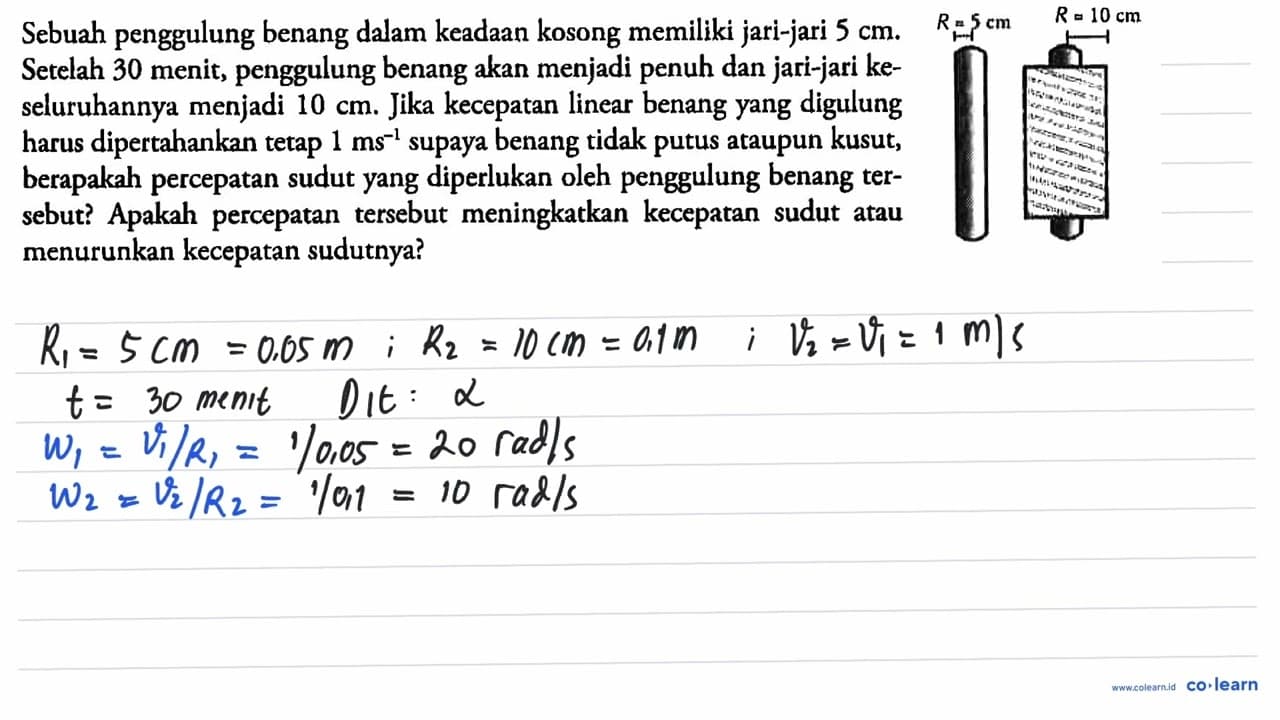 Sebuah penggulung benang dalam keadaan kosong memiliki jari-jari 5 cm.
Setelah 30 menit, penggulung benang akan menjadi penuh dan jari-jari ke-
seluruhannya menjadi 10 cm. Jika kecepatan linear benang yang digulung
harus dipertahankan tetap 1 ms⁻¹ supaya benang tidak putus ataupun kusut,
berapakah percepatan sudut yang diperlukan oleh penggulung benang ter-
sebut? Apakah percepatan tersebut meningkatkan kecepatan sudut atau
menurunkan kecepatan sudutnya?
R = 5 cm
R = 10 cm
R₁ = 5 cm = 0.05 m ; R₂ = 10 cm = 0,1 m ; v₂ = v₁ = 1 m/s
t = 30 menit Dit : α
W₁ = v₁/R₁ = 1/0,05 = 20 rad/s
W₂ = v₂/R₂ = 1/0,1 = 10 rad/s
www.colearn.id co·learn